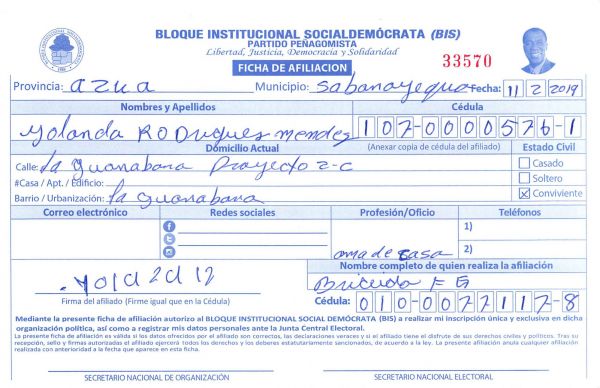 BLOQUE INSTITUCIONAL SOCIALDEMÓCRATA (BIS)
PARTIDO PEÑAGOMISTA
Libertad, Justicia, Democracia y Solidaridad
FICHA DE AFILIACION
33570
Provincia: azua Municipio: Sabanayegua Fecha: 11 2 2019
Nombres y Apellidos Cédula
Yolanda RODrigues mendes 107-0000576-1
Domicilio Actual (Anexar copia de cédula del afiliado) Estado Civil
Calle: la guanabana proyecto 2-C Casado
#Casa / Apt. / Edificio: Soltero
Barrio / Urbanización: la guanabana Conviviente
Correo electrónico Redes sociales Profesión/Oficio Teléfonos
1)
ama de casa 2)
Nombre completo de quien realiza la afiliación
Briceida F G
Firma del afiliado (Firme igual que en la Cédula) Cédula: 010-0077117-8
Mediante la presente ficha de afiliación autorizo al BLOQUE INSTITUCIONAL SOCIAL DEMÓCRATA (BIS) a realizar mi inscripción única y exclusiva en dicha
organización política, así como a registrar mis datos personales ante la Junta Central Electoral.
La presente ficha de afiliación es válida si los datos ofrecidos por el afiliado son correctos, las declaraciones veraces y si el afiliado tiene el disfrute de sus derechos civiles y políticos. Tras su
recepción, sello y firmas autorizadas el afiliado ejercerá todos los derechos y los deberes estatutariamente sancionados, de acuerdo a la ley. La presente afiliación anula cualquier afiliación
realizada con anterioridad a la fecha que aparece en esta ficha.
SECRETARIO NACIONAL DE ORGANIZACIÓN SECRETARIO NACIONAL ELECTORAL